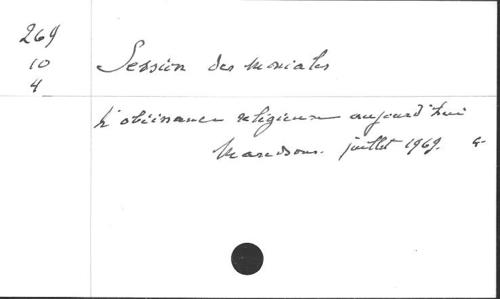 269
10
4
Session des Moniales
L'obéissance religieuse aujourd'hui
Maredsous. juillet 1969.